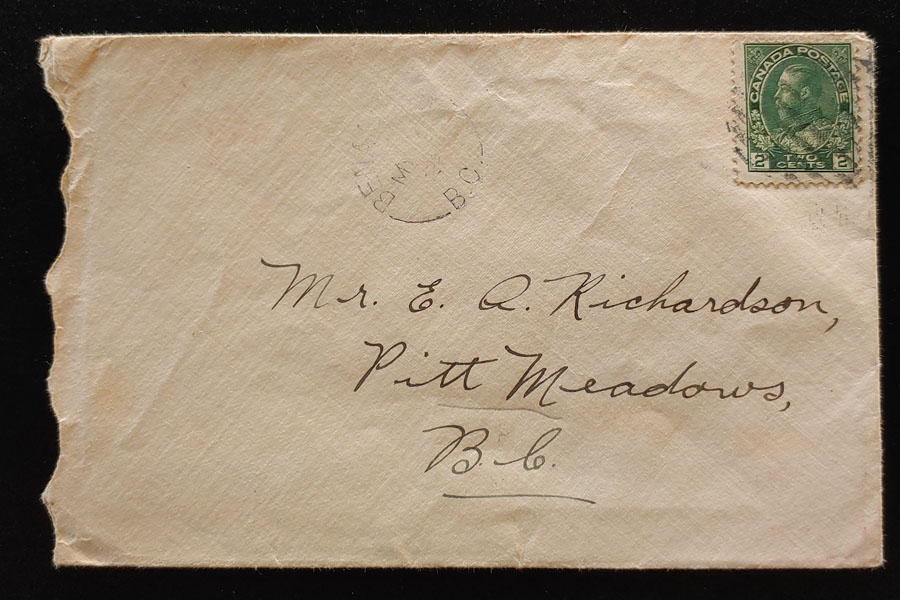 CANADA POSTAGE
2 TWO CENTS 2
B.C.
Mr. E. A. Richardson,
Pitt Meadows,
B.C.